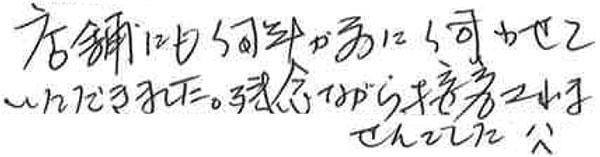 店舗にも何年か前に伺わせて
いただきました。残念ながら接客されま
せんでした